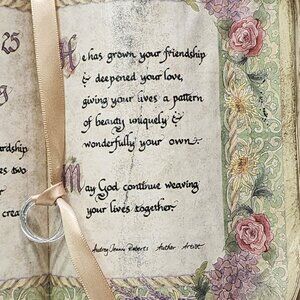 25
He has grown your friendship
& deepened your love,
giving your lives a pattern
of beauty uniquely &
wonderfully your own.
dship
es two
r
creat
May God continue weaving
your lives together.
Audrey Jeanne Roberts Author Artist